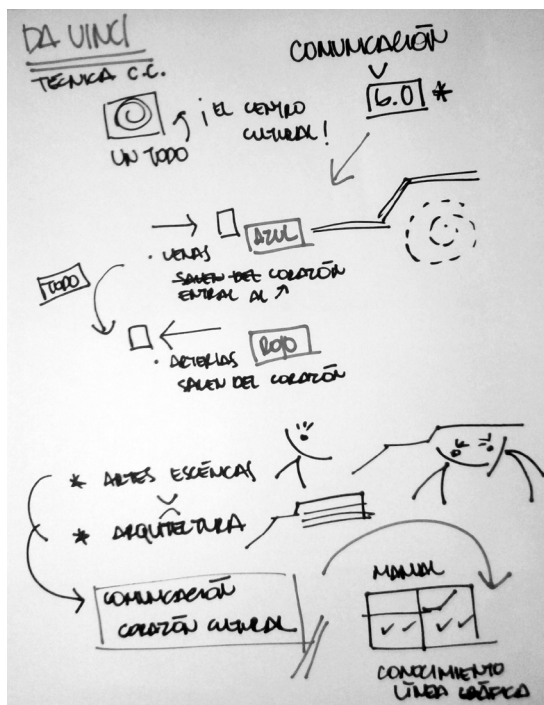 DA VINCI
TÉCNICA C.C.
COMUNICACIÓN
6.0 *
¡EL CENTRO
CULTURAL!
UN TODO
AZUL
• VENAS
SALEN DEL CORAZÓN
ENTRAL AL ↗
TODO
ROJO
• ARTERIAS
SALEN DEL CORAZÓN
* ARTES ESCÉNICAS
* ARQUITECTURA
COMUNICACIÓN
CORAZÓN CULTURAL
MANUAL
CONOCIMIENTO
LÍNEA GRÁFICA